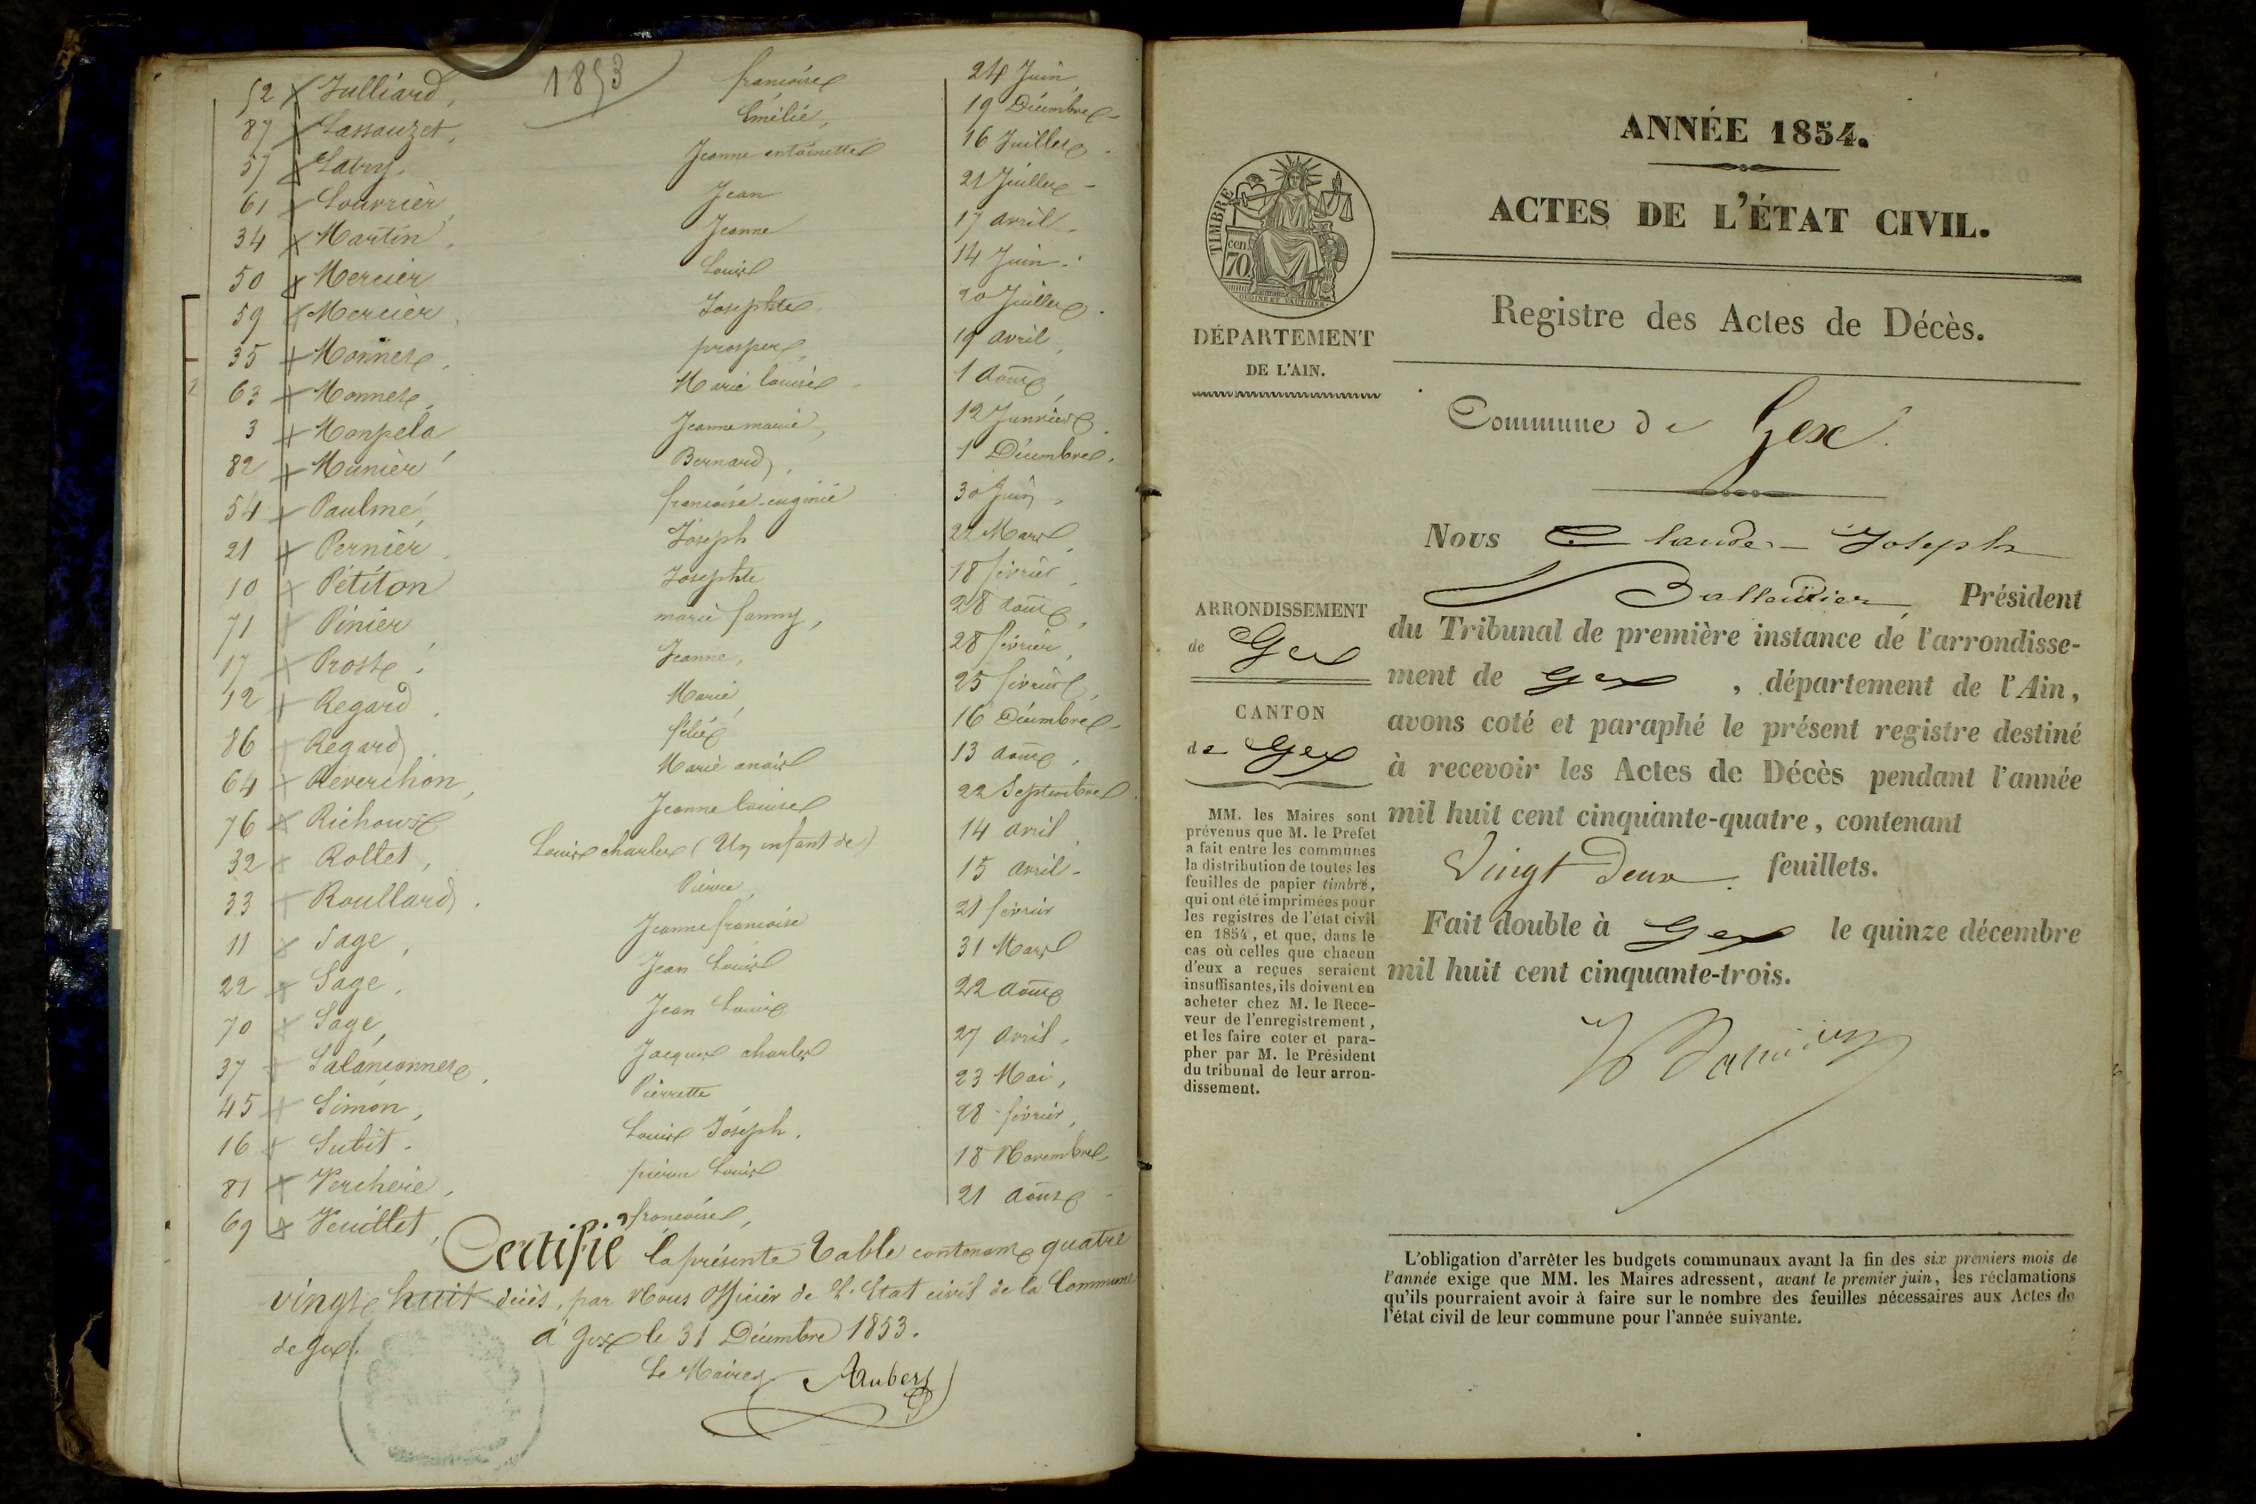 1853
52 Julliard, françoise 24 Juin
87 Lassauzet, Emélie, 19 Décembre
57 Lavry. Jeanne antoinette 16 Juillet
61 Louvrier, Jean 21 Juillet
34 Martin, Jeanne 17 avril
50 Mercier Louis 14 Juin
59 Mercier, Josephte 20 Juillet
35 Monnet, prosper, 19 avril
63 Monnet, Marie louise 1 Août
3 Monpela Jeanne marie, 12 Janvier
82 Munier Bernard, 1 Décembre
54 Paulme, françoise-eugénie 30 Juin
21 Pernier, Joseph 22 Mars
10 Pétiton Josephte 18 février
71 Pinier marie fanny, 28 août
17 Prost, Jeanne, 28 février,
12 Regard, Marie, 25 février,
86 Regard, félix 16 Décembre
64 Reverchon, Marie anaïs 13 août,
76 Richoux Jeanne louise 22 Septembre
32 Rollet, Louis charles (Un enfant de) 14 avril
33 Roullard, Pierre, 15 avril
11 Sage, Jeanne françoise 21 février
22 Sage, Jean Louis 31 Mars
70 Sage, Jean Louis 22 août
37 Salançonnet, Jacques charles 27 avril,
45 Simon, Pierrette 23 Mai,
16 Subit. Louis Joseph, 28 février,
81 Vercherie, pierre Louis 18 Novembre
69 Veuillet, françoise, 21 août
Certifié la présente Table contenant quatre
vingt huit décès, par Nous Officier de l'Etat civil de la Commune
de Gex. à Gex le 31 Décembre 1853.
Le Maire Aubert
ANNÉE 1854.
ACTES DE L'ÉTAT CIVIL.
TIMBRE
70 cen.
DÉPARTEMENT
DE L'AIN.
Registre des Actes de Décès.
Commune de Gex.
Nous Claude-Joseph
Balleidier, Président
du Tribunal de première instance de l'arrondisse-
ment de Gex, département de l'Ain,
avons coté et paraphé le présent registre destiné
à recevoir les Actes de Décès pendant l'année
mil huit cent cinquante-quatre, contenant
Vingt Deux feuillets.
Fait double à Gex le quinze décembre
mil huit cent cinquante-trois.
ARRONDISSEMENT
de Gex
CANTON
de Gex
MM. les Maires sont
prévenus que M. le Préfet
a fait entre les communes
la distribution de toutes les
feuilles de papier timbré,
qui ont été imprimées pour
les registres de l'état civil
en 1854, et que, dans le
cas où celles que chacun
d'eux a reçues seraient
insuffisantes, ils doivent en
acheter chez M. le Rece-
veur de l'enregistrement,
et les faire coter et para-
pher par M. le Président
du tribunal de leur arron-
dissement.
L'obligation d'arrêter les budgets communaux avant la fin des six premiers mois de
l'année exige que MM. les Maires adressent, avant le premier juin, les réclamations
qu'ils pourraient avoir à faire sur le nombre des feuilles nécessaires aux Actes de
l'état civil de leur commune pour l'année suivante.